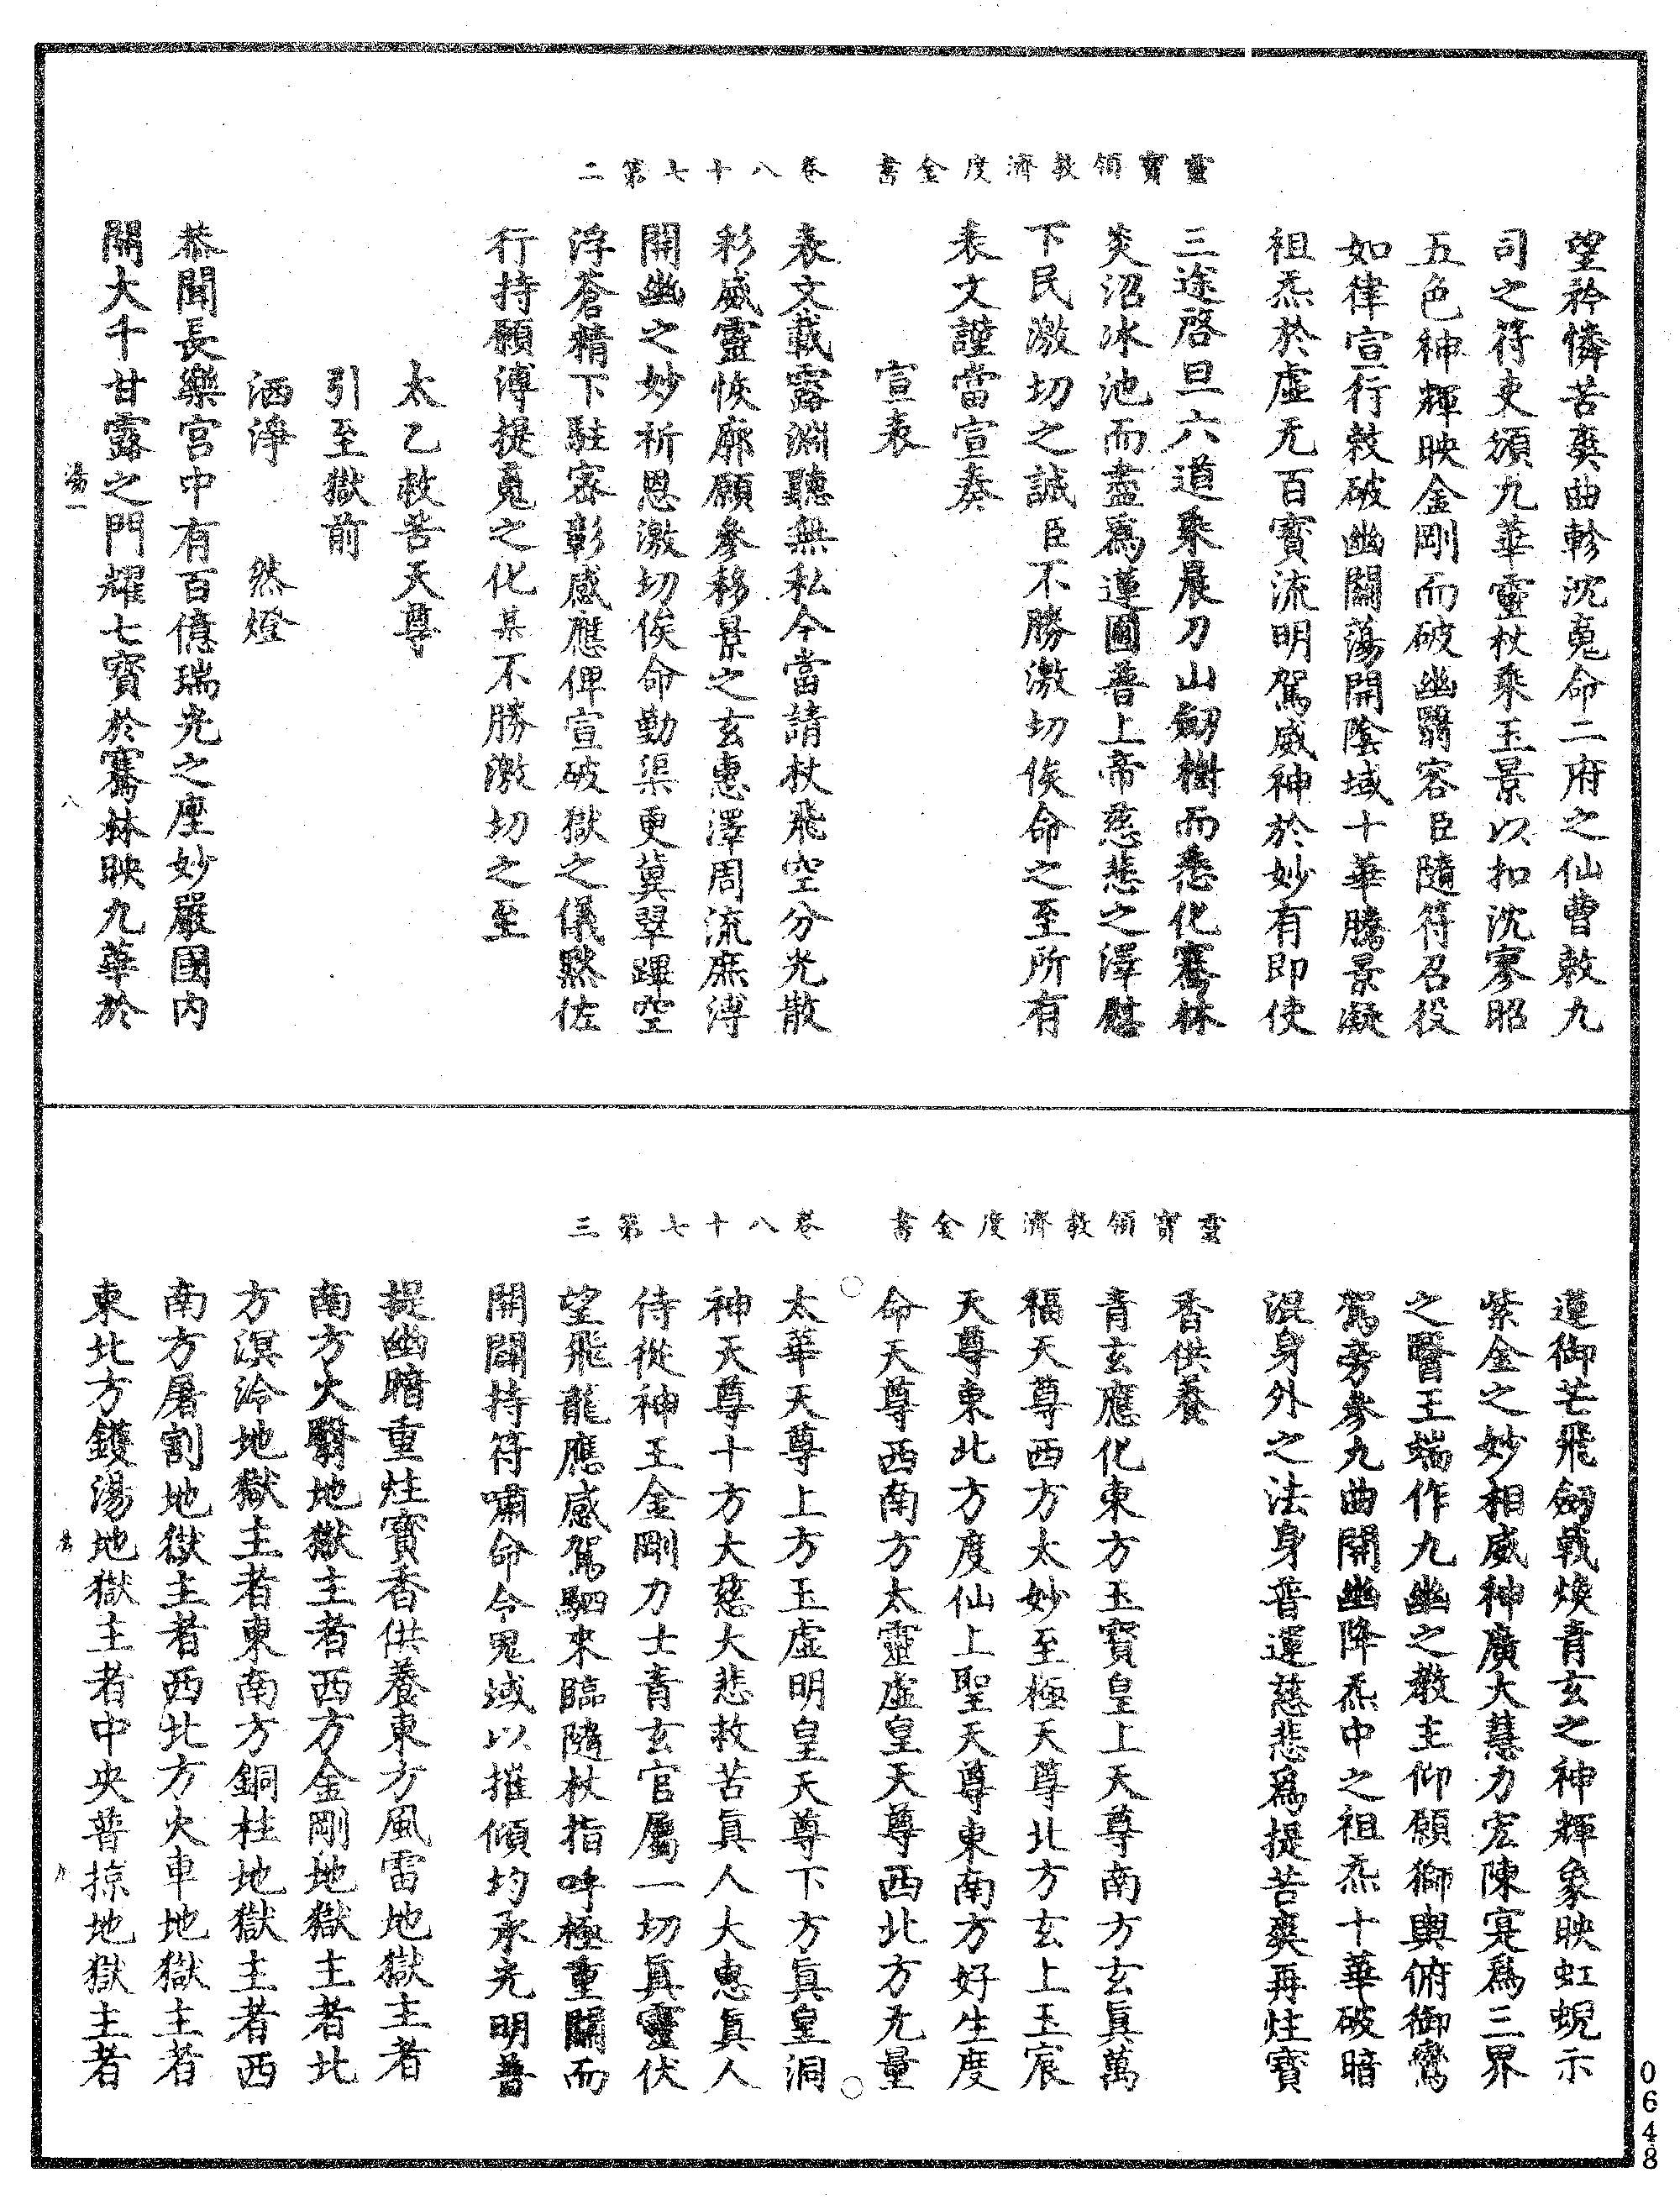 靈寶領教濟度金書　卷八十七第二
望矜憐苦爽曲軫沈䰟命二府之仙曹敕九
司之符吏頒九華靈杖乘玉景以扣沈寥昭
五色神輝映金剛而破幽翳容臣隨符召役
如律宣行敕破幽關蕩開陰域十華騰景凝
祖炁於虛无百寶流明駕威神於妙有即使
三途啓旦六道乘晨刀山劒樹而悉化騫林
炎沼冰池而盡爲蓮圃普上帝慈悲之澤慰
下民激切之誠臣不勝激切俟命之至所有
表文謹當宣奏
宣表
表文載露淵聽無私今當請杖飛空分光散
彩威靈恢廓願參移景之玄惠澤周流庶溥
開幽之妙祈恩激切俟命勤渠更冀翠蹕空
浮蒼精下駐密彰感應俾宣破獄之儀黙佐
行持願溥提䰟之化某不勝激切之至
太乙救苦天尊
引至獄前
洒淨　然燈
恭聞長樂宮中有百億瑞光之座妙嚴國內
開大千甘露之門耀七寶於騫林映九華於
八
靈寶領教濟度金書　卷八十七第三
蓮御芒飛劒戟煥青玄之神輝象映虹蜺示
紫金之妙相威神廣大慧力宏陳寔爲三界
之醫王端作九幽之教主仰願獅輿俯御鸞
駕旁參九曲開幽降炁中之祖炁十華破暗
混身外之法身普運慈悲爲提苦爽再炷寶
香供養
青玄應化東方玉寶皇上天尊南方玄眞萬
福天尊西方太妙至極天尊北方玄上玉宸
天尊東北方度仙上聖天尊東南方好生度
命天尊西南方太靈虛皇天尊西北方无量
太華天尊上方玉虛明皇天尊下方眞皇洞
神天尊十方大慈大悲救苦眞人大惠眞人
侍從神王金剛力士青玄官屬一切眞靈伏
望飛龍應感駕駟來臨隨杖指呼極重關而
開闢持符嘯命令鬼域以摧傾均承光明普
提幽暗重炷寶香供養東方風雷地獄主者
南方火翳地獄主者西方金剛地獄主者北
方溟泠地獄主者東南方銅柱地獄主者西
南方屠割地獄主者西北方火車地獄主者
東北方鑊湯地獄主者中央普掠地獄主者
九
0648